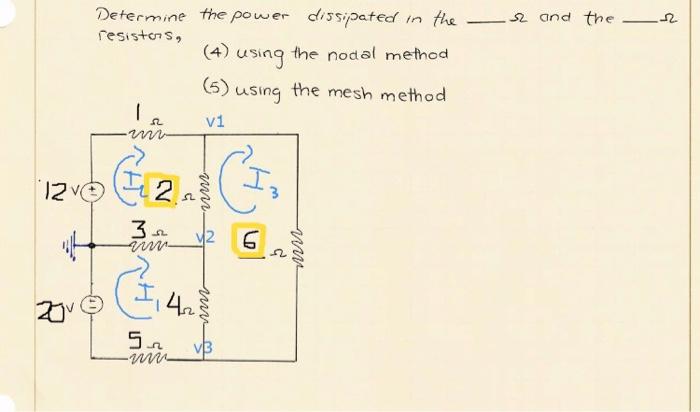 Determine the power dissipated in the ___ Ω and the ___ Ω
resistors,
(4) using the nodal method
(5) using the mesh method
1 Ω
v1
12 V
I2
2 Ω
I3
3 Ω
v2
6 Ω
20 V
I1
4 Ω
5 Ω
v3